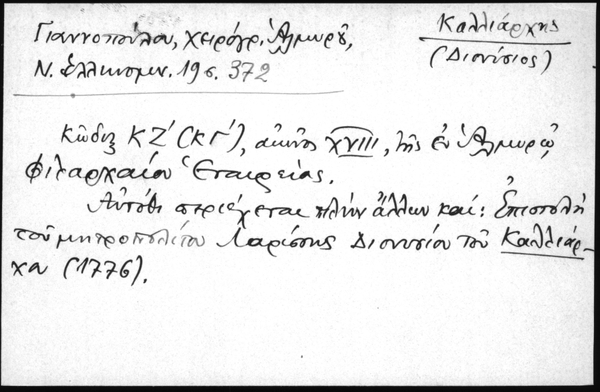 Γιαννοπούλου, χειρόγρ. Ἁλμυροῦ,
Ν. Ἑλληνομν. 19 σ. 372
Καλλιάρχης
(Διονύσιος)
Κῶδιξ ΚΖ' (ΚΓ'), αἰῶνος XVIII, τῆς ἐν Ἁλμυρῷ
Φιλαρχαίου Ἑταιρείας.
Αὐτόθι περιέχεται πλὴν ἄλλων καί: Ἐπιστολὴ
τοῦ μητροπολίτου Λαρίσσης Διονυσίου τοῦ Καλλιάρ-
χου (1776).